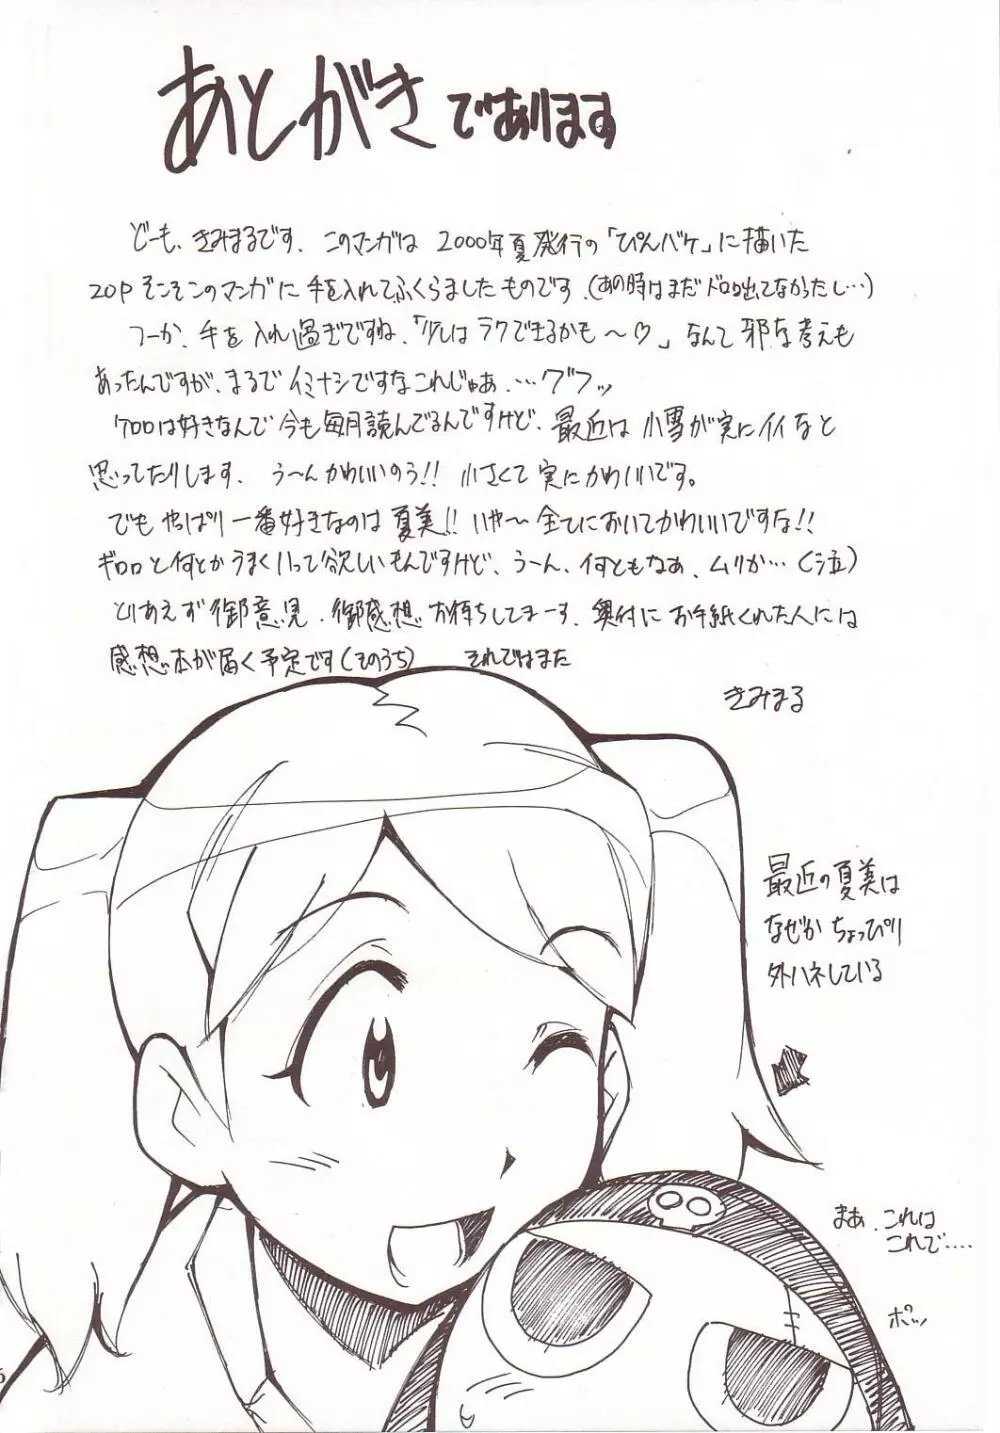 あとがきであります
どーも、きみまるです、このマンガは2000年夏発行の「ぴんバケ」に描いた
20Pそこそこのマンガに手を入れてふくらましたものです、(あの時はまだドロロ出てなかったし…)
つーか、手を入れ過ぎですね、「少しはラクできるかも〜♡」なんて邪な考えも
あったんですが、まるでイミナシですなこれじゃあ、…グフッ
ケロロは好きなんで今も毎月読んでるんですけど、最近は小雪が実にイイなと
思ってたりします、う〜んかわいいのう!!小さくて実にかわいいです。
でもやっぱり一番好きなのは夏美!!いや〜全てにおいてかわいいですな!!
ギロロと何とかうまくいって欲しいもんですけど、う〜ん、何ともなあ、ムリか…(泣)
とりあえず御意見、御感想お待ちしてまーす、奥付にお手紙くれた人には
感想本が届く予定です(そのうち) それではまた
きみまる
最近の夏美は
なぜかちょっぴり
外ハネしている
まあ、これは
これで....
ポッ
6